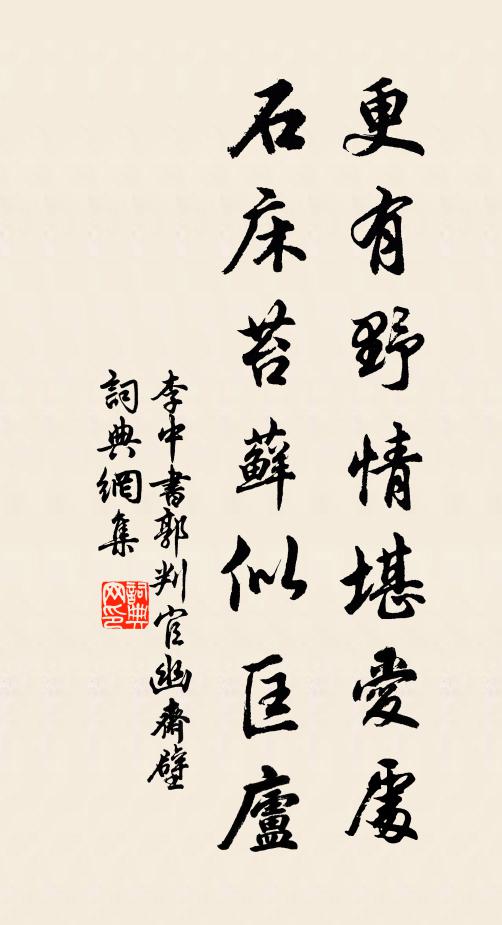 更有野情堪愛處
石床苔蘚似匡廬
李中書郭判官幽齋壁
詞典網集
詞典網印